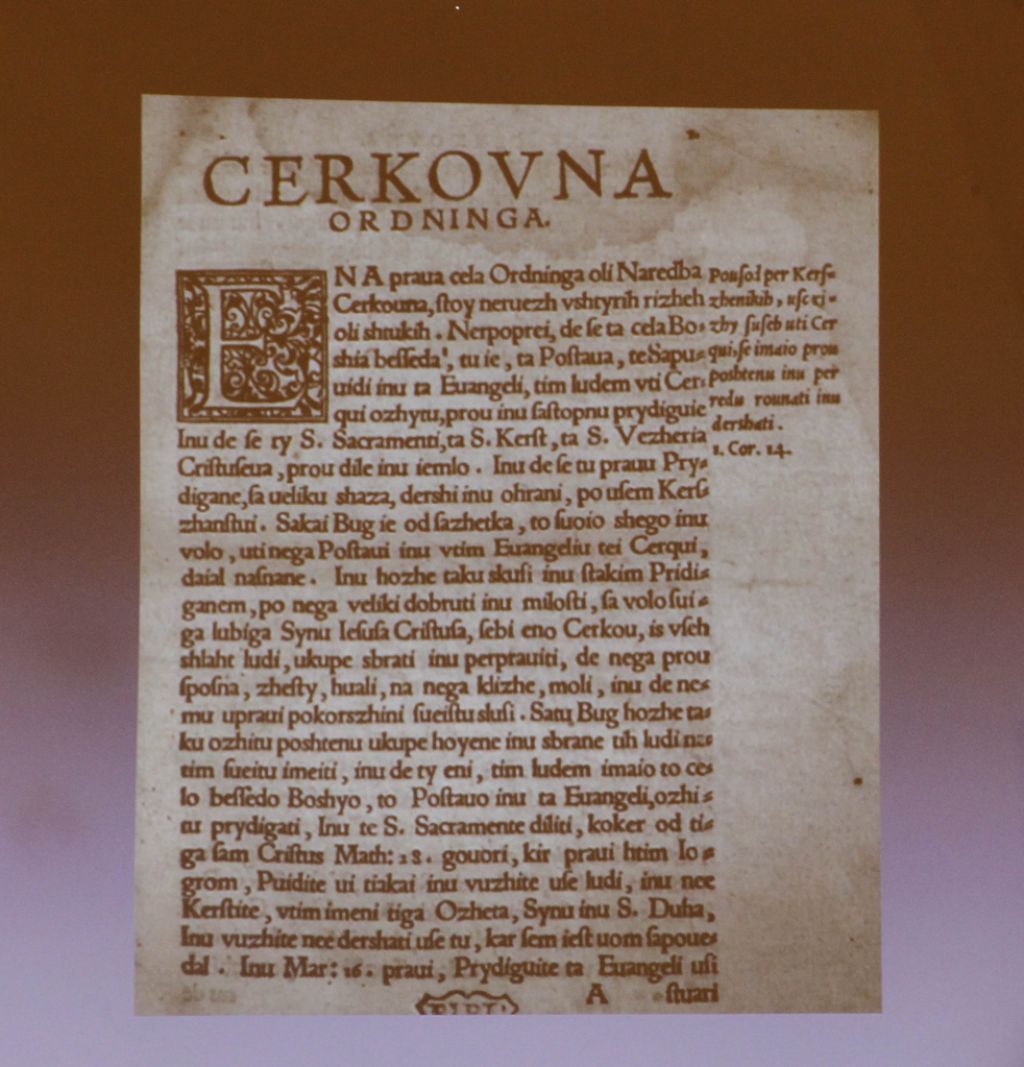 CERKOVNA
ORDNINGA.
ENA praua cela Ordninga oli Naredba
Cerkouna, ſtoy neruezh vshtyrih rizheh
oli shtukih . Nerpoprei, de ſe ta cela Bo⸗
shia beſſeda, tu ie, ta Poſtaua, te Sapu⸗
uidi inu ta Euangeli, tim ludem vti Cer⸗
qui ozhytu, prou inu ſaſtopnu prydiguie
Inu de ſe ty S. Sacramenti, ta S. Kerſt, ta S. Vezheria
Criſtuſeua, prou dile inu iemlo . Inu de ſe tu prauu Pry⸗
digane, ſa ueliku shaza, dershi inu ohrani, po uſem Kerſ⸗
zhanſtui . Sakai Bug ie od ſazhetka, to ſuoio shego inu
volo, uti nega Poſtaui inu vtim Euangeliu tei Cerqui,
daial naſnane . Inu hozhe taku skuſi inu ſtakim Pridi⸗
ganem, po nega veliki dobruti inu miloſti, ſa volo ſui⸗
ga lubiga Synu Ieſuſa Criſtuſa, ſebi eno Cerkou, is vſeh
shlaht ludi, ukupe sbrati inu perprauiti, de nega prou
ſpoſna, zheſty, huali, na nega klizhe, moli, inu de ne⸗
mu upraui pokorszhini ſueiſtu sluſi . Satu Bug hozhe ta⸗
ku ozhitu poshtenu ukupe hoyene inu sbrane tih ludi na⸗
tim ſueitu imeiti, inu de ty eni, tim ludem imaio to ce⸗
lo beſſedo Boshyo, to Poſtauo inu ta Euangeli, ozhi⸗
tu prydigati, Inu te S. Sacramente diliti, koker od ti⸗
ga ſam Criſtus Math: 28. gouori, kir praui htim Io⸗
grom, Puidite ui tiakai inu vuzhite uſe ludi, inu nee
Kerſtite, vtim imeni tiga Ozheta, Synu inu S. Duha,
Inu vuzhite nee dershati uſe tu, kar ſem ieſt uom ſapoue⸗
dal . Inu Mar: 16. praui, Prydiguite ta Euangeli uſi
A ſtuari
Pouſod per Kerſ⸗
zhenikih, uſe ri⸗
zhy ſuſeb uti Cer
qui, ſe imaio prou
poshtenu inu per
redu rounati inu
dershati .
1. Cor. 14.